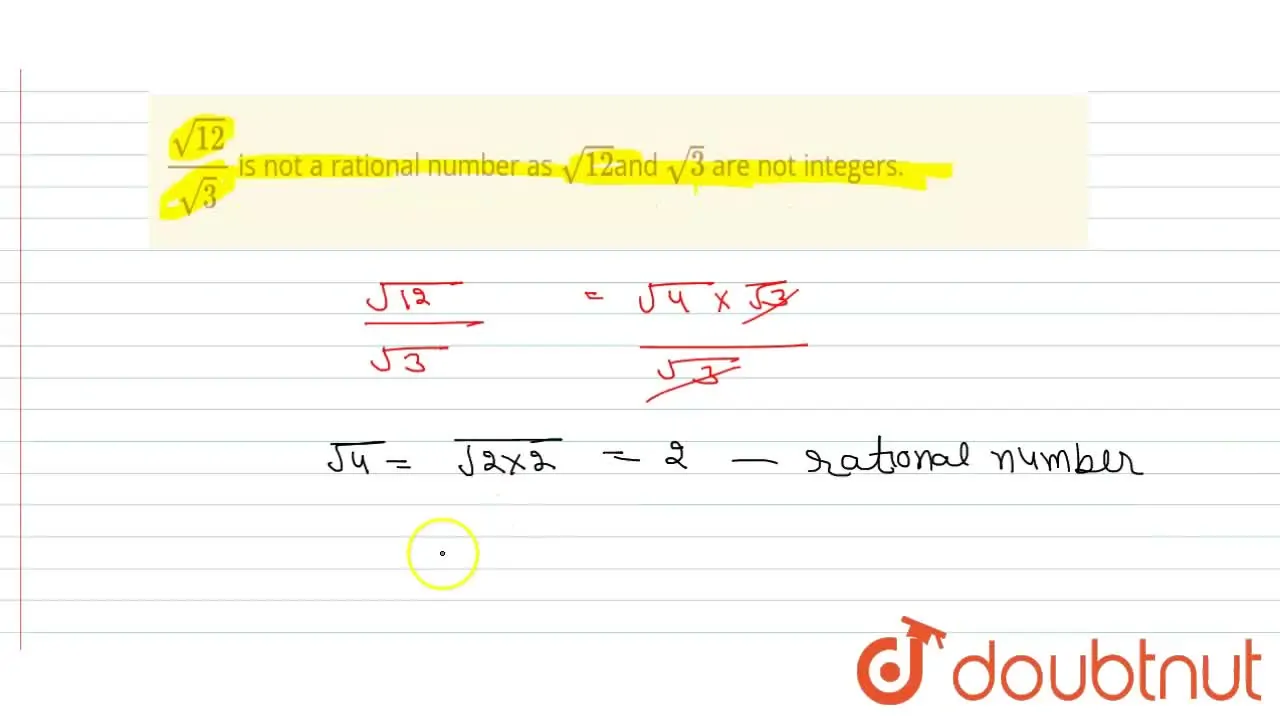 √12
√3 is not a rational number as √12and √3 are not integers.
√12 = √4 × √3
√3 √3
√4 = √2×2 = 2 — rational number
doubtnut